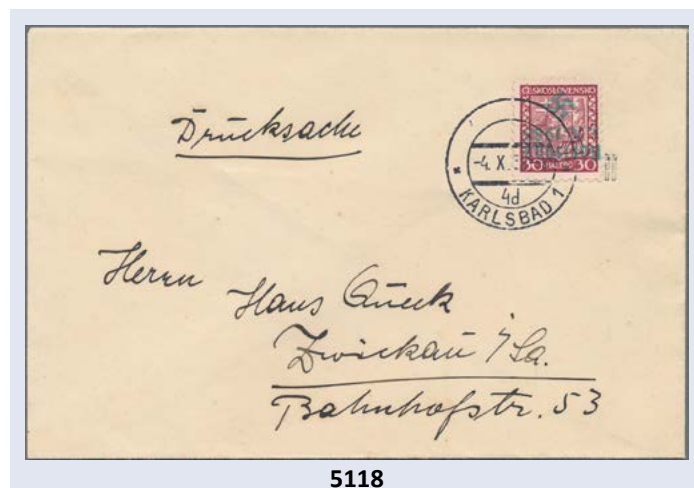 Drucksache
ČESKOSLOVENSKO
30 HALÉŘŮ 30
-4. X.
4d
* KARLSBAD 1
Herrn
Hans Queck
Zwickau i/Sa.
Bahnhofstr. 53
5118